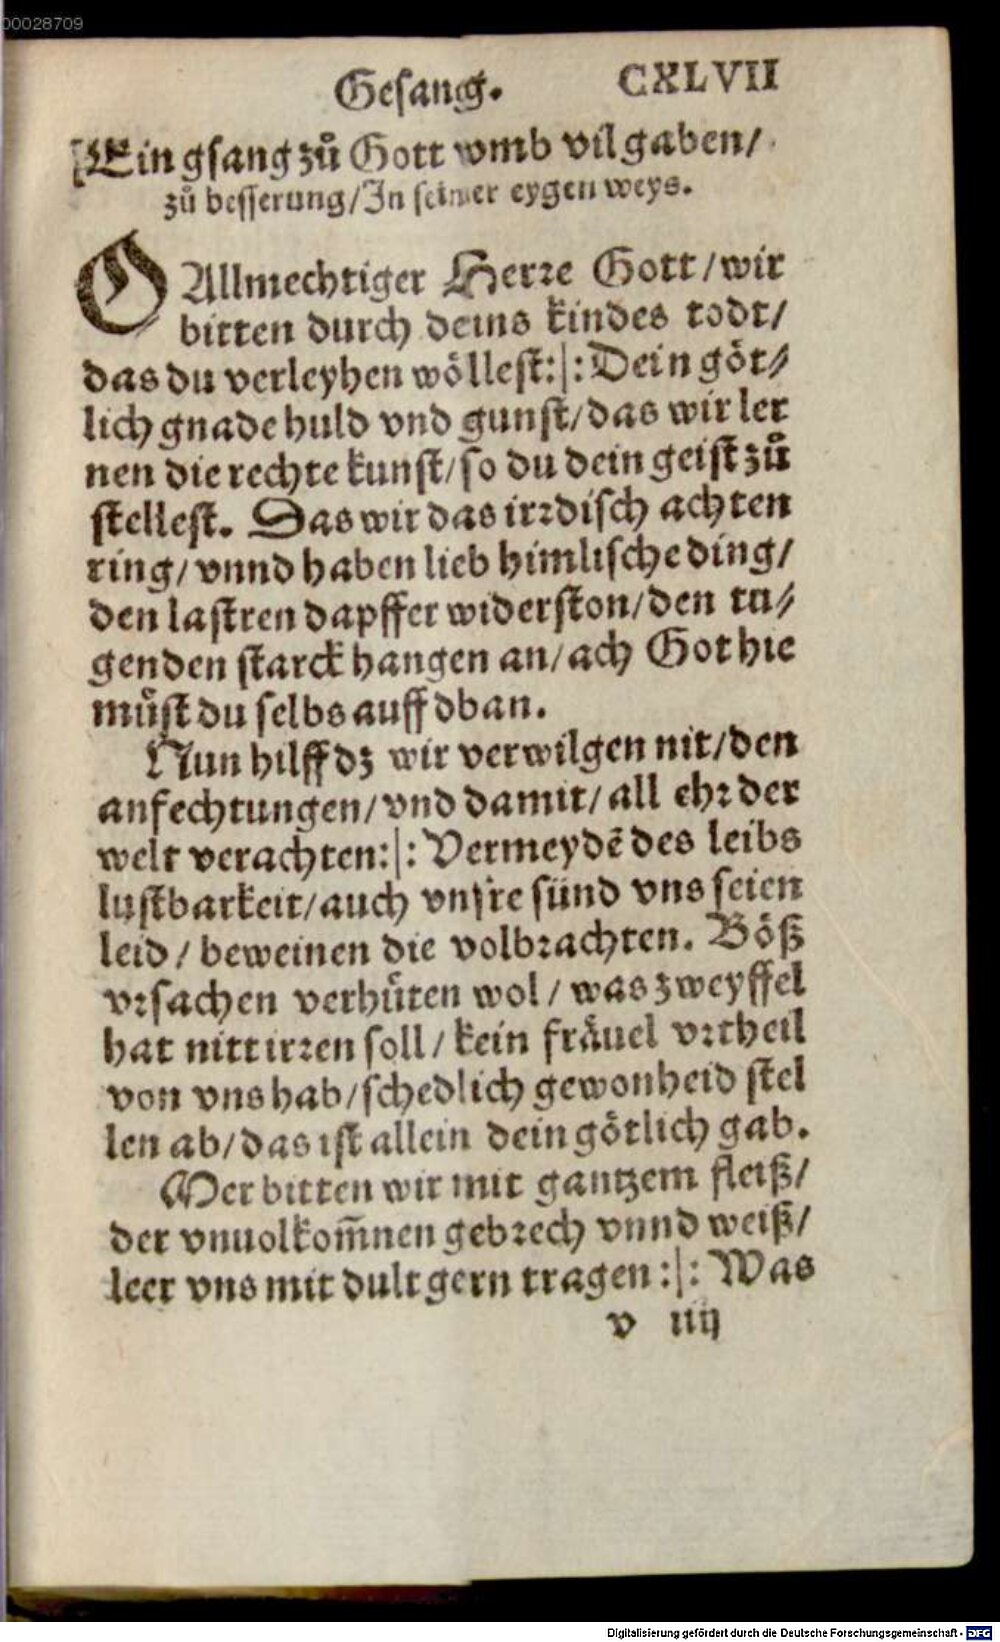 00028709
Gesang. CXLVII
Ein gsang zů Gott vmb vil gaben/
zů besserung/In seiner eygen weys.
O Allmechtiger Herꝛe Gott/wir
bitten durch deins kindes todt/
das du verleyhen wöllest:|:Dein göt⸗
lich gnade huld vnd gunst/das wir ler
nen die rechte kunst/so du dein geist zů
stellest. Das wir das irꝛdisch achten
ring/vnnd haben lieb himlische ding/
den lastren dapffer widerston/den tu⸗
genden starck hangen an/ach Got hie
můst du selbs auff dban.
Nun hilff dz wir verwilgen nit/den
anfechtungen/vnd damit/all ehꝛ der
welt verachten:|: Vermeydē des leibs
lustbarkeit/auch vnsre sünd vns seien
leid/beweinen die volbꝛachten. Böß
vꝛsachen verhüten wol/was zweyffel
hat nitt irꝛen soll/kein fräuel vꝛtheil
von vns hab/schedlich gewonheid stel
len ab/das ist allein dein götlich gab.
Mer bitten wir mit gantzem fleiß/
der vnuolkom̄nen gebꝛech vnnd weiß/
leer vns mit dult gern tragen:|: Was
v iiij
Digitalisierung gefördert durch die Deutsche Forschungsgemeinschaft - DFG